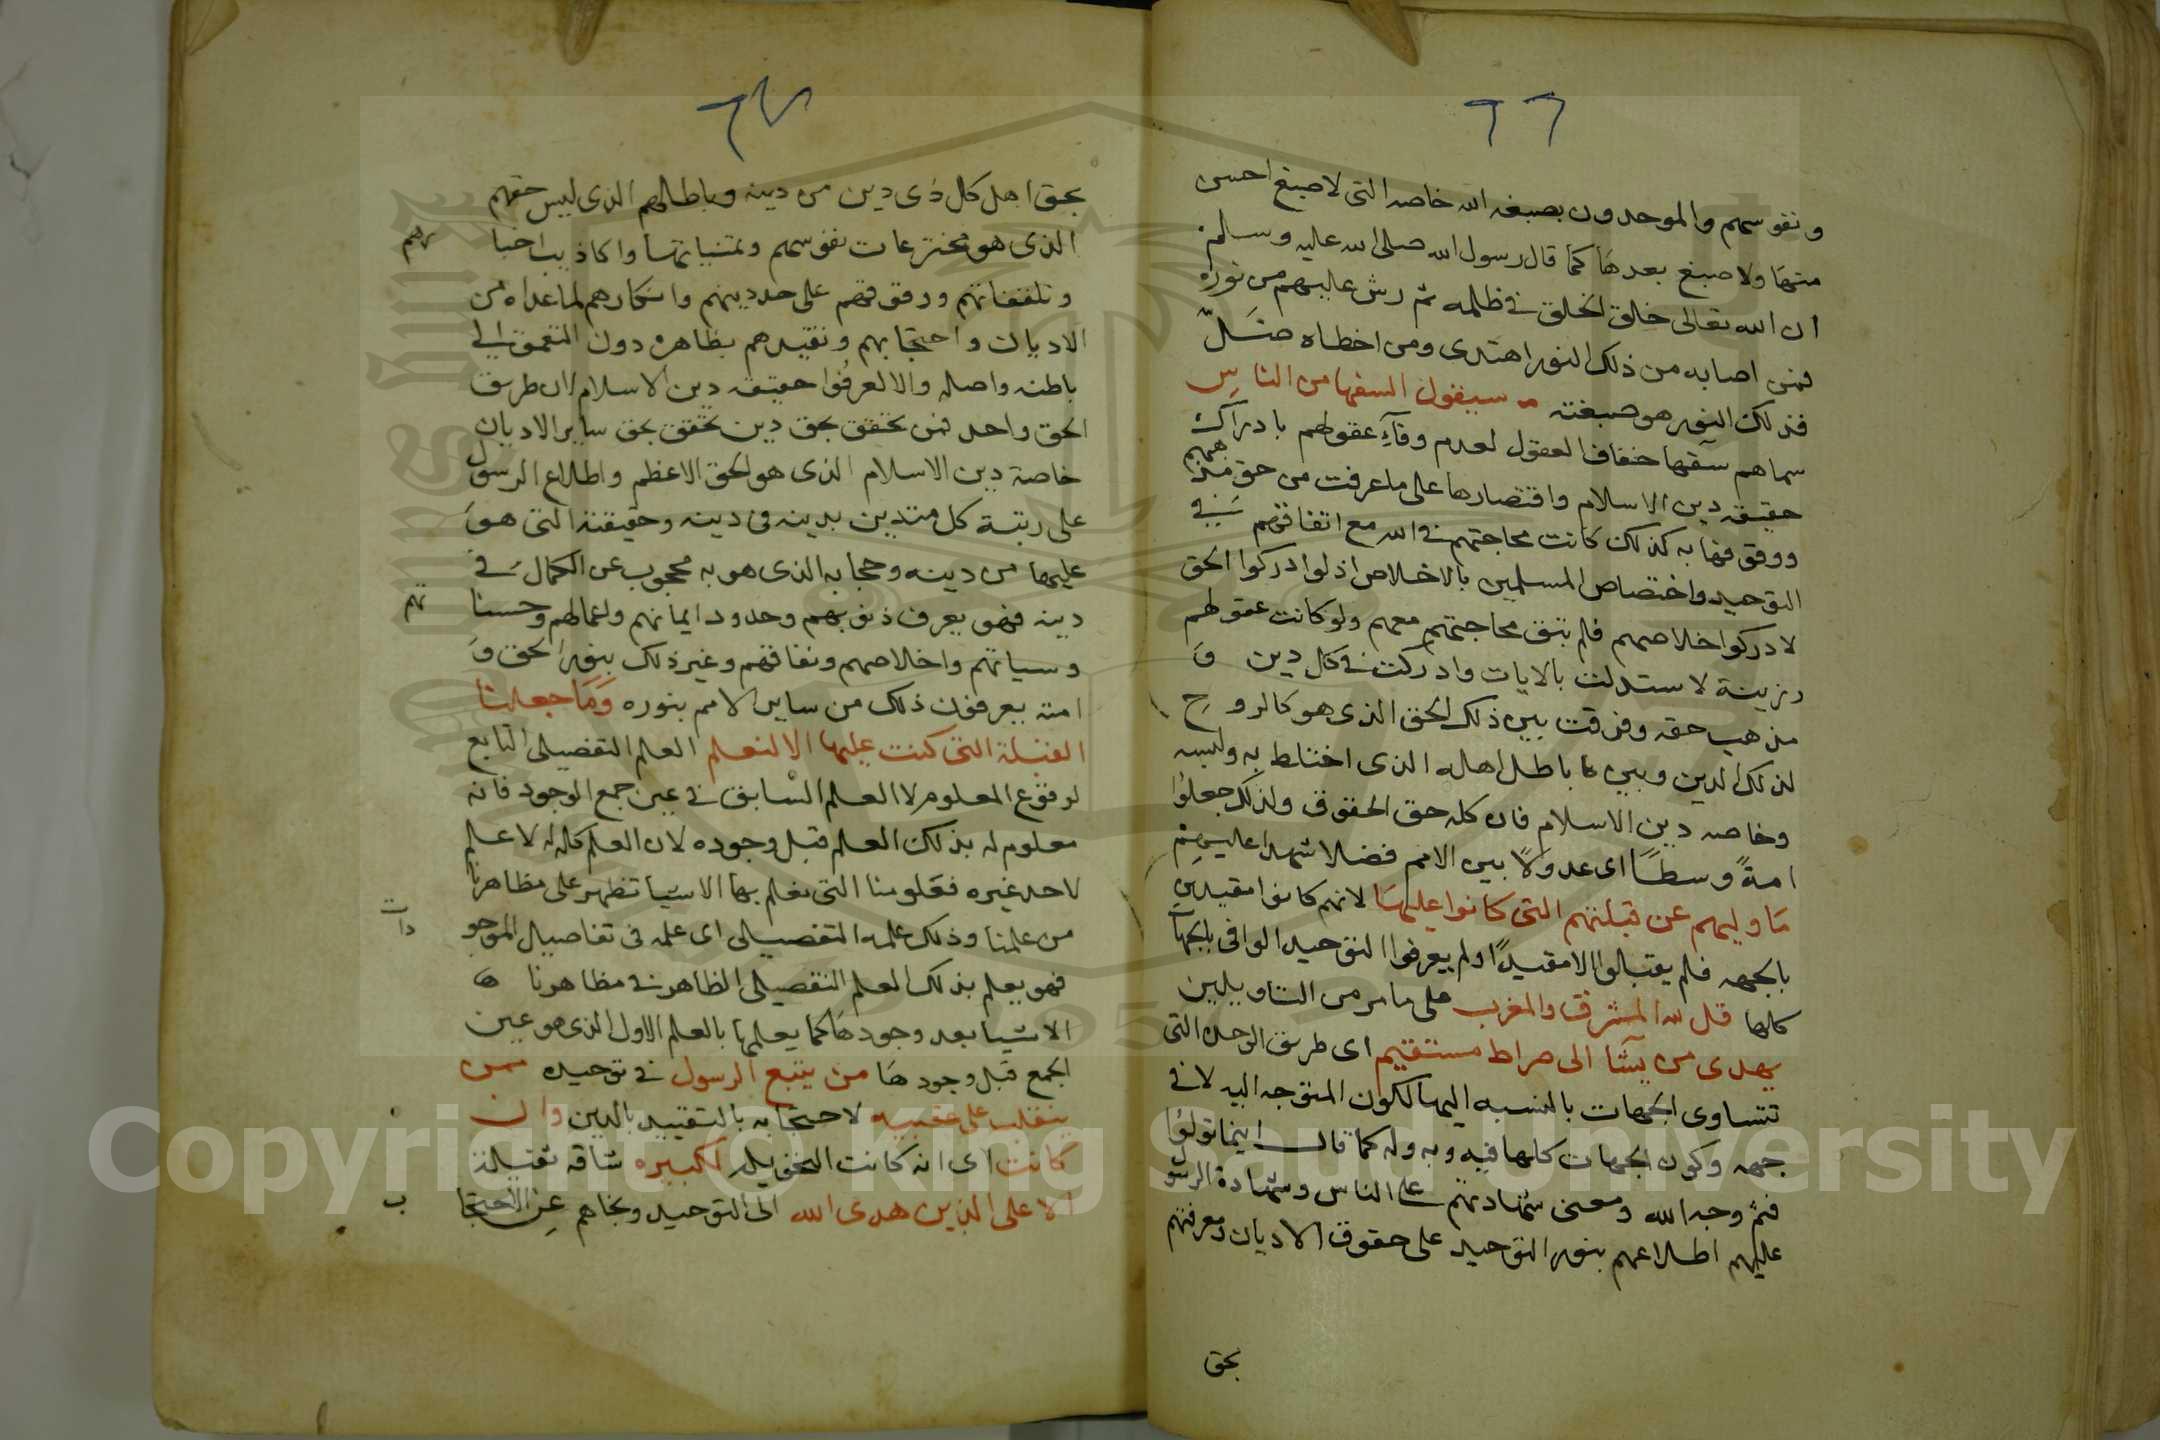 ٦٦
ونفوسهم والموحدون بصبغه الله خاصه التى لا صبغ احسن
منها ولا صبغ بعدها كما قال رسول الله صلى الله عليه وسلم
ان الله تعالى خلق الخلق فى ظلمه ثم رش عليهم من نوره
فمن اصابه من ذلك النور اهتدى ومن اخطاه ضلّ
فذلك النور هو صبغته سيقول السفها من الناس
سماهم سفها خفاف العقول لعدم وفآء عقولهم بادراك
حقيقه دين الاسلام واقتصارها على ما عرفت من حق مذهبهم
ووقوفها به كذلك كانت محاجتهم فى الله مع اتفاقهم فى
التوحيد واختصاص المسلمين بالاخلاص اذ لو ادركوا الحق
لادركوا اخلاصهم فلم تبق محاجتهم معهم ولو كانت عقولهم
رزينة لاستدلت بالايات وادركت فى كل دين و
مذهب حقه وفرقت بين ذلك الحق الذى هو كالروح
لذلك الدين وبين باطل اهله الذى اختلط به ولبسه
وخاصه دين الاسلام فان كله حق الحقوق ولذلك جعلوا
امةً وسطًا اى عدولًا بين الامم فضلا شهدا عليهم
مَا وليهم عن قبلتهم التى كانوا عليها لانهم كانوا مقيدين
بالجهه فلم يقبلوا الا مقيدًا ولم يعرفوا التوحيد الوافى بالجهات
كلها قل لله المشرق والمغرب على ما مر من التاويلين
يهدى من يشآ الى صراط مستقيم اى طريق الوحده التى
تتساوى الجهات بالنسبه اليها لكون المتوجه اليه لا فى
جهه وكون الجهات كلها فيه وبه وله كما قال اينما تولوا
فثم وجه الله ومعنى شهادتهم على الناس وشهادة الرسول
عليهم اطلاعهم بنور التوحيد على حقوق الاديان ومعرفتهم
بحق
٦٧
بحق اهل كل ذى دين من دينه وباطلهم الذى ليس حقهم
الذى هو مخترعات نفوسهم وتمنياتها واكاذيب اخبا
رهم
وتلفقاتهم ووقوفهم على حد دينهم وانكارهم لما عداه من
الاديان واحتجابهم وتقيدهم بظاهره دون التعمق الى
باطنه واصله والا لعرفوا حقيقه دين الاسلام لان طريق
الحق واحد فمن تحقق بحق دين تحقق بحق ساير الاديان
خاصة دين الاسلام الذى هو الحق الاعظم واطلاع الرسول
على رتبة كل متدين بدينه فى دينه وحقيقته التى هو
عليها من دينه وحجابه الذى هو به محجوب عن الكمال فى
دينه فهو يعرف ذنوبهم وحدود ايمانهم واعمالهم وحسنا
تهم
وسياتهم واخلاصهم ونفاقهم وغير ذلك بنور الحق و
امته يعرفون ذلك من ساير الامم بنوره وَمَا جعلنا
القبلة التى كنت عليها الا لنعلم العلم التفصيلى التابع
لوقوع المعلوم لا العلم السابق فى عين جمع الوجود فانه
معلوم له بذلك العلم قبل وجوده لان العلم كله له لا علم
لاحد غيره فعلومنا التى نعلم بها الاشيا تظهر على مظاهرنا
من علمنا وذلك علمه التفصيلى اى علمه فى تفاصيل الموجو
دات
فهو يعلم بذلك العلم التفصيلى الظاهر فى مظاهرنا
الاشيا بعد وجودها كما يعلمها بالعلم الاول الذى هو عين
الجمع قبل وجودها من يتبع الرسول فى توحيده ممن
ينقلب على عقبيه لاحتجابه بالتقييد بالدين وان
كانت اى انه كانت التحويله لكبيره شاقه ثقيلة
الا على الذين هدى الله الى التوحيد ونجاهم عن الاحتجا
ب
Copyright © King Saud University
1957